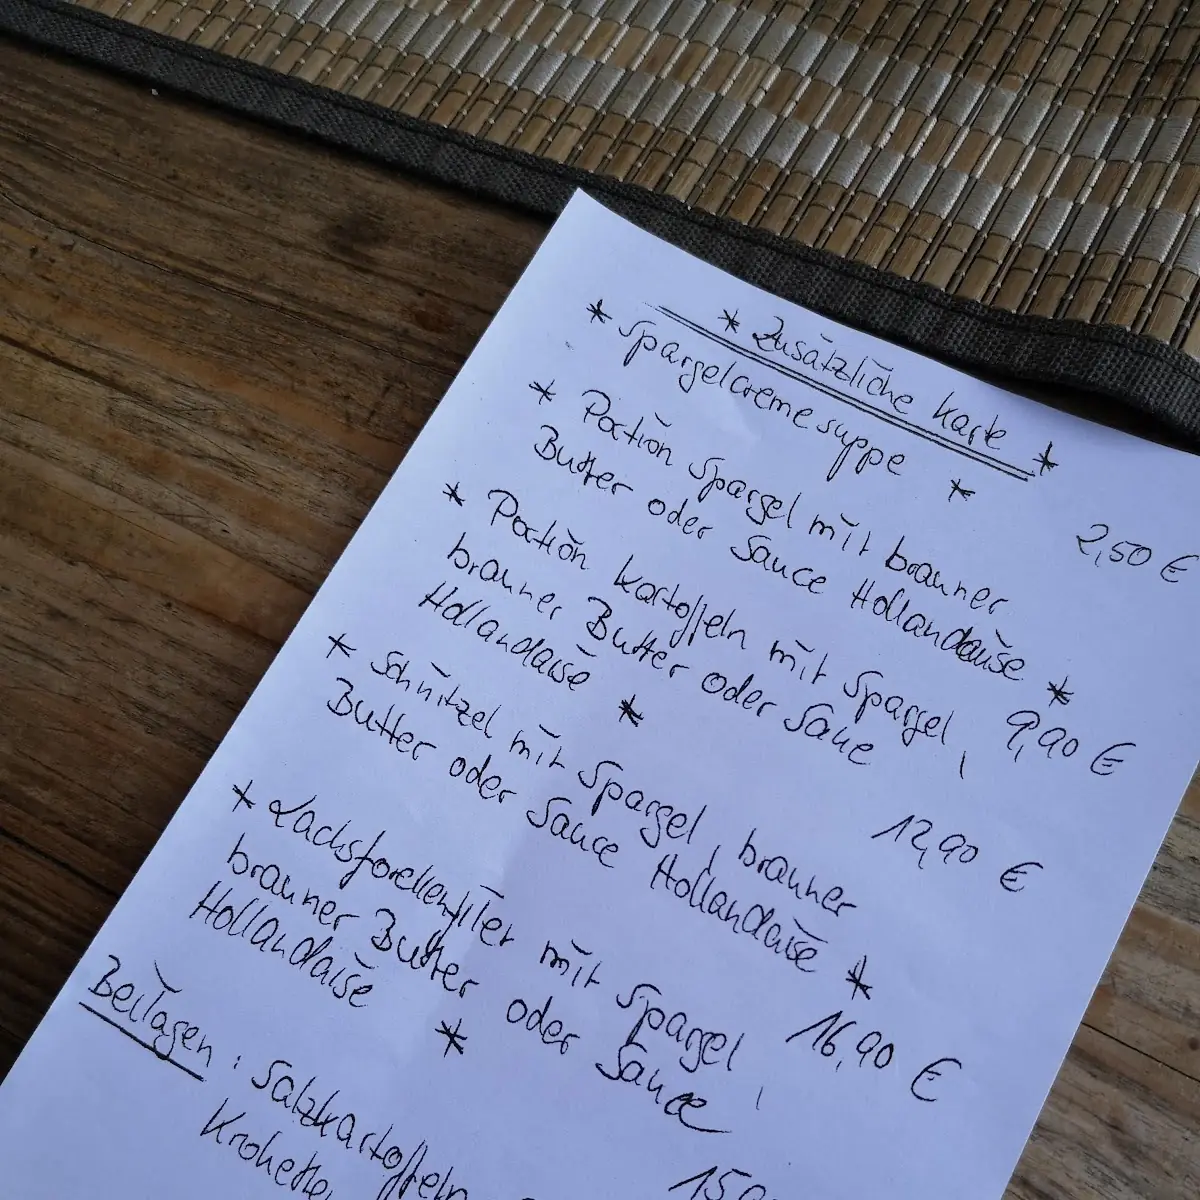 * Zusätzliche Karte *
* Spargelcremesuppe * 2,50 €
* Portion Spargel mit brauner
Butter oder Sauce Hollandaise * 9,90 €
* Portion Kartoffeln mit Spargel,
brauner Butter oder Sauce
Hollandaise * 12,90 €
* Schnitzel mit Spargel, brauner
Butter oder Sauce Hollandaise * 16,90 €
* Lachsforellenfilet mit Spargel,
brauner Butter oder Sauce
Hollandaise *
Beilagen: Salzkartoffeln